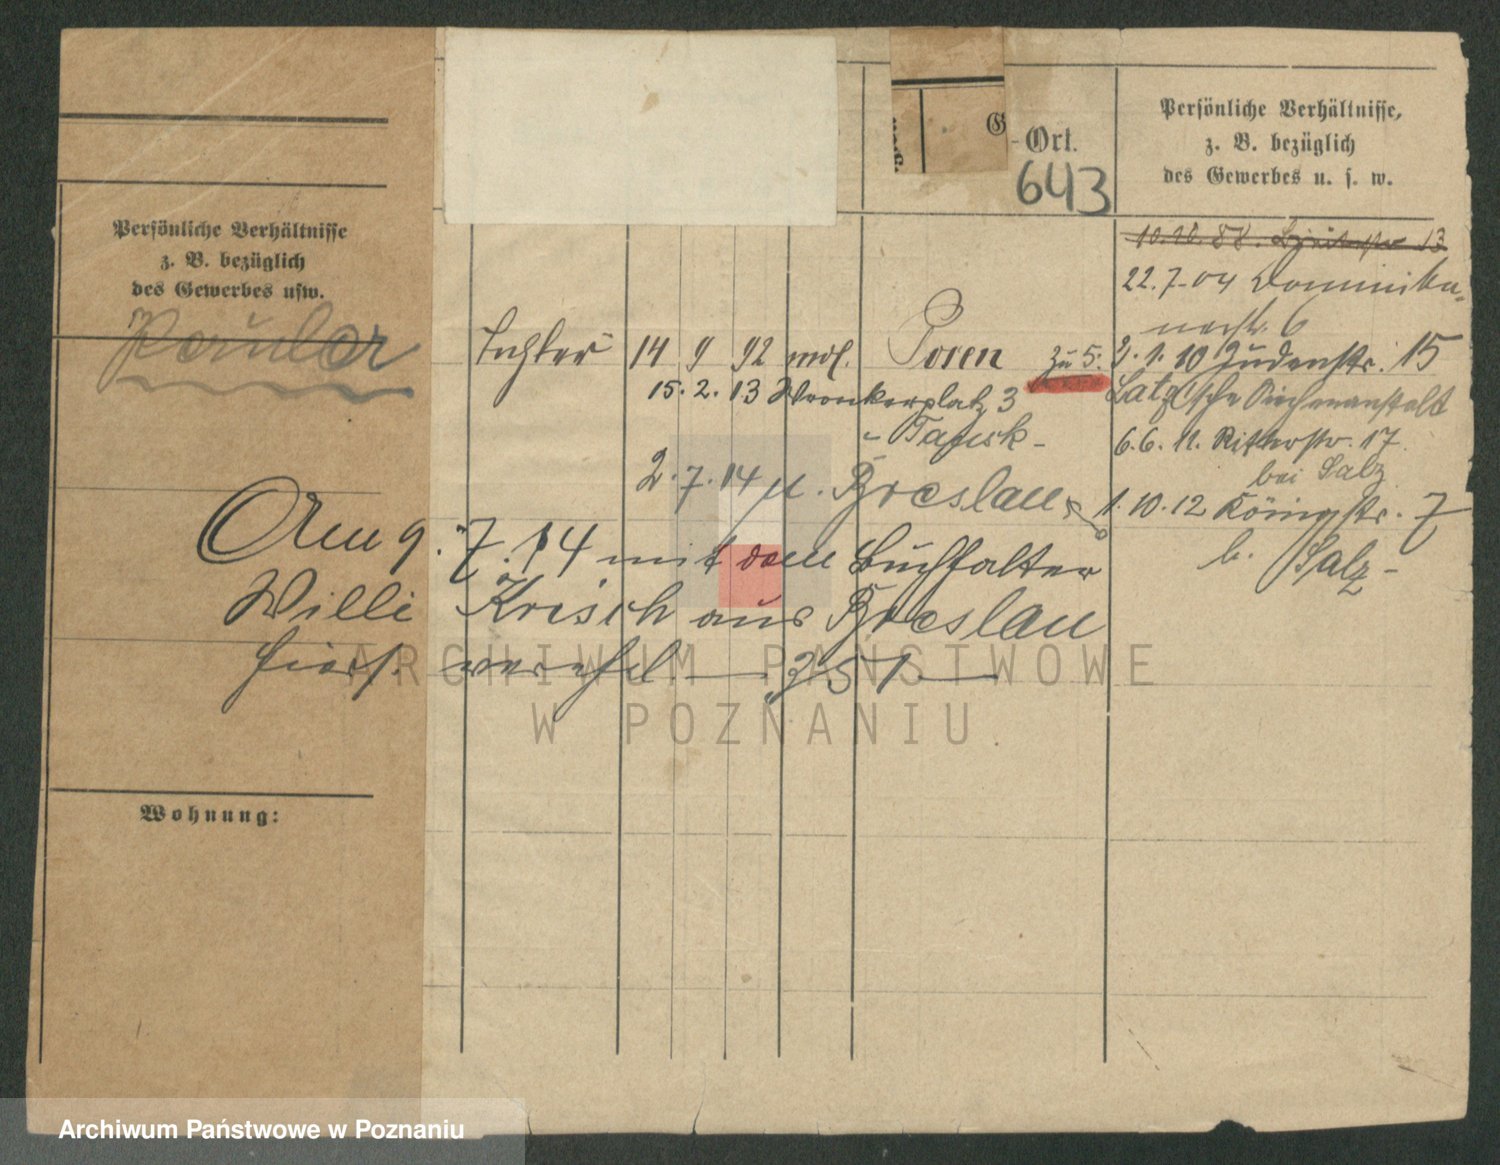 Persönliche Verhältnisse
z. B. bezüglich
des Gewerbes usw.
Wohnung:
G
-Ort.
643
Persönliche Verhältnisse,
z. B. bezüglich
des Gewerbes u. s. w.
22.7.04 Dominika-
nerstr. 6
Tochter 14 9 92 mos. Posen zu 5. 2.1.10 Judenstr. 15
15.2.13 Wronkerplatz 3
Latz'sche
- Tausk -
6.6.11. Ritterstr. 17.
bei Salz
2.7.14 n. Breslau
1.10.12 Königstr. 7
b. Salz -
Am 9.7.14 mit dem Buchhalter
Willi Krisch aus Breslau
hiers. verehel. — 351 —
ARCHIWUM PAŃSTWOWE
W POZNANIU
Archiwum Państwowe w Poznaniu